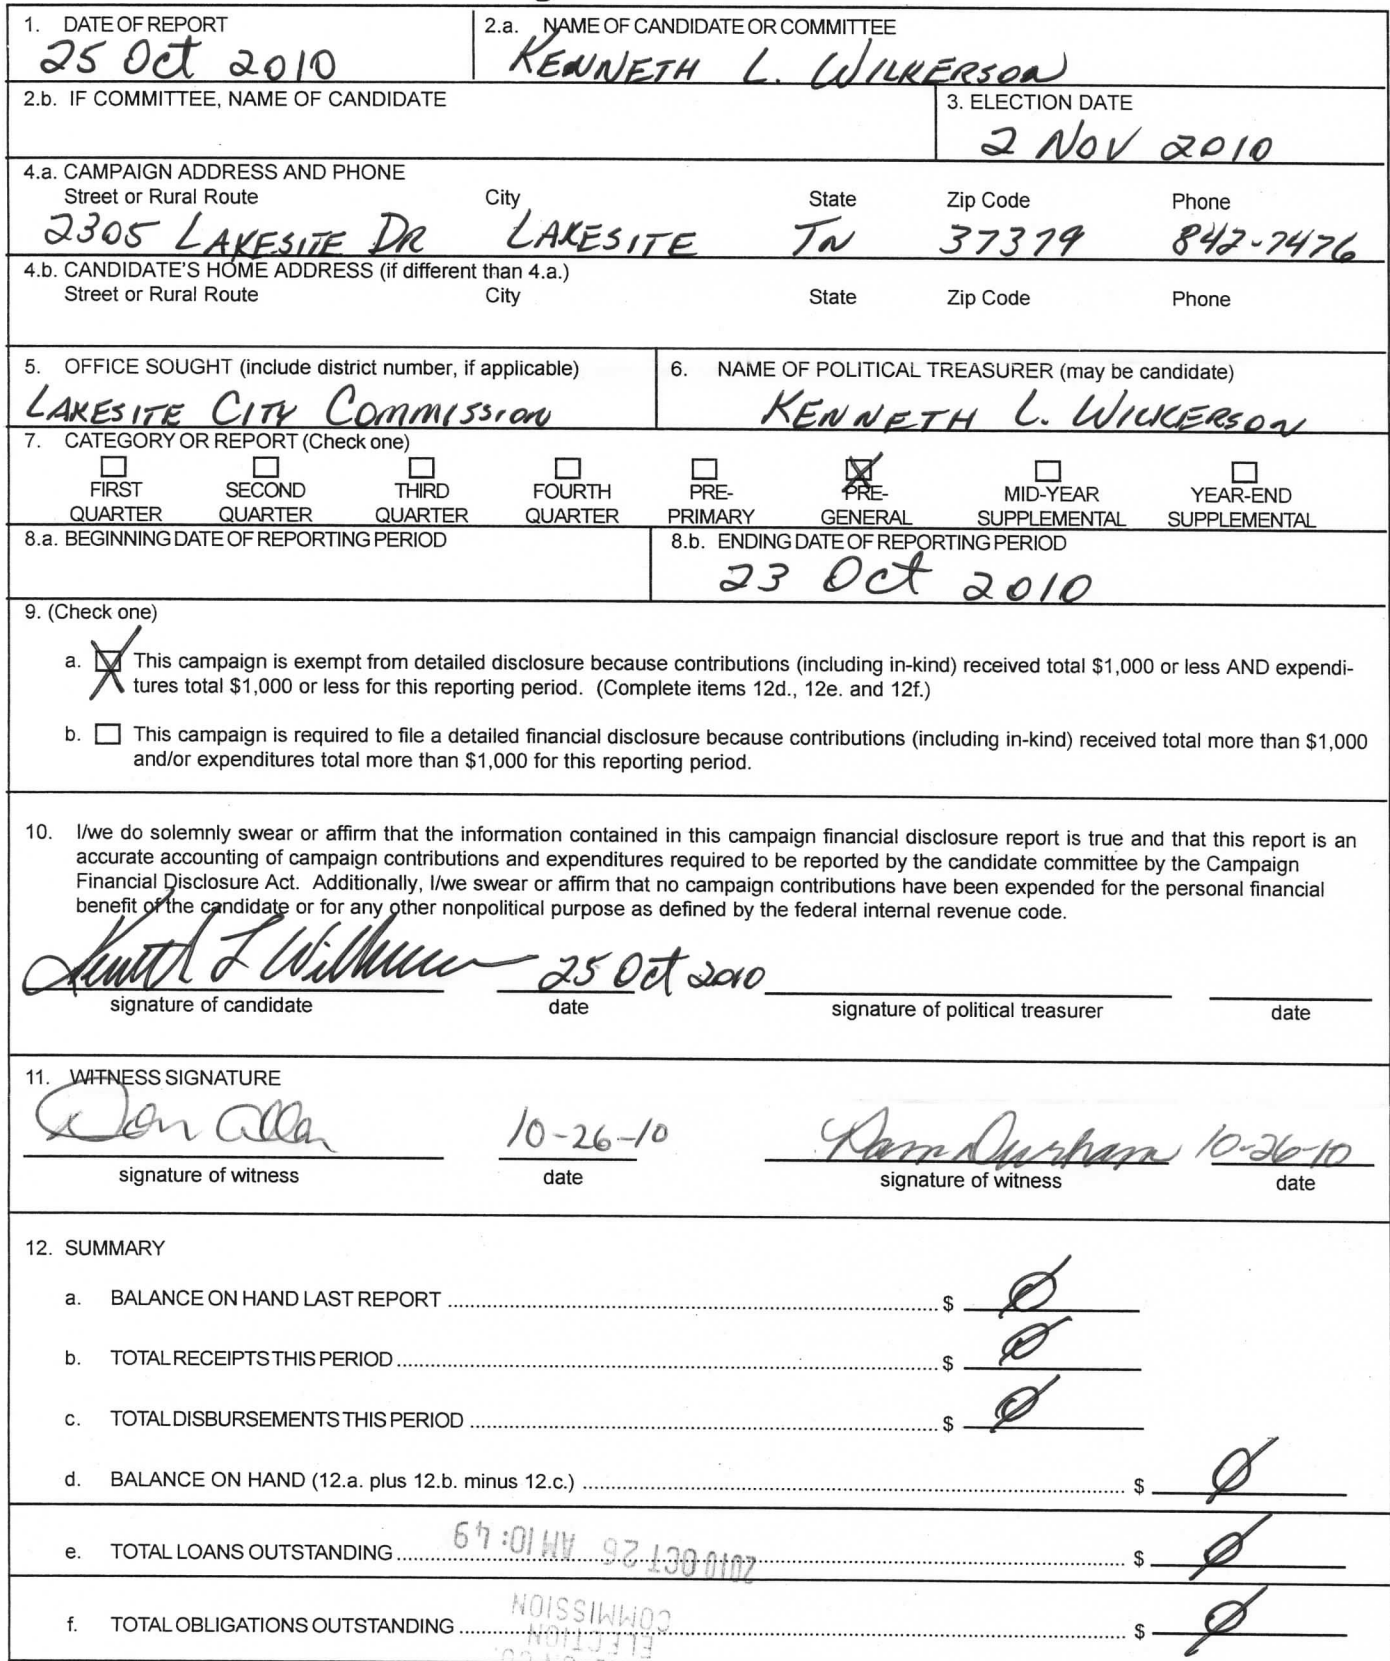 1. DATE OF REPORT
25 Oct 2010
2.a. NAME OF CANDIDATE OR COMMITTEE
KENNETH L. WILKERSON
2.b. IF COMMITTEE, NAME OF CANDIDATE
3. ELECTION DATE
2 NOV 2010
4.a. CAMPAIGN ADDRESS AND PHONE
Street or Rural Route City State Zip Code Phone
2305 LAKESITE DR LAKESITE TN 37379 842-7476
4.b. CANDIDATE'S HOME ADDRESS (if different than 4.a.)
Street or Rural Route City State Zip Code Phone
5. OFFICE SOUGHT (include district number, if applicable)
LAKESITE CITY COMMISSION
6. NAME OF POLITICAL TREASURER (may be candidate)
KENNETH L. WILKERSON
7. CATEGORY OR REPORT (Check one)
FIRST QUARTER
SECOND QUARTER
THIRD QUARTER
FOURTH QUARTER
PRE-PRIMARY
X PRE-GENERAL
MID-YEAR SUPPLEMENTAL
YEAR-END SUPPLEMENTAL
8.a. BEGINNING DATE OF REPORTING PERIOD
8.b. ENDING DATE OF REPORTING PERIOD
23 Oct 2010
9. (Check one)
a. X This campaign is exempt from detailed disclosure because contributions (including in-kind) received total $1,000 or less AND expendi-
tures total $1,000 or less for this reporting period. (Complete items 12d., 12e. and 12f.)
b. This campaign is required to file a detailed financial disclosure because contributions (including in-kind) received total more than $1,000
and/or expenditures total more than $1,000 for this reporting period.
10. I/we do solemnly swear or affirm that the information contained in this campaign financial disclosure report is true and that this report is an
accurate accounting of campaign contributions and expenditures required to be reported by the candidate committee by the Campaign
Financial Disclosure Act. Additionally, I/we swear or affirm that no campaign contributions have been expended for the personal financial
benefit of the candidate or for any other nonpolitical purpose as defined by the federal internal revenue code.
Kenneth L Wilkerson 25 Oct 2010
signature of candidate date signature of political treasurer date
11. WITNESS SIGNATURE
Don Allen 10-26-10 Pam Durham 10-26-10
signature of witness date signature of witness date
12. SUMMARY
a. BALANCE ON HAND LAST REPORT $ Ø
b. TOTAL RECEIPTS THIS PERIOD $ Ø
c. TOTAL DISBURSEMENTS THIS PERIOD $ Ø
d. BALANCE ON HAND (12.a. plus 12.b. minus 12.c.) $ Ø
e. TOTAL LOANS OUTSTANDING $ Ø
2010 OCT 26 AM 10:49
f. TOTAL OBLIGATIONS OUTSTANDING $ Ø
ELECTION
COMMISSION